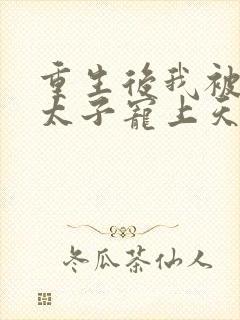 重生後我被
太子寵上天
冬瓜茶仙人